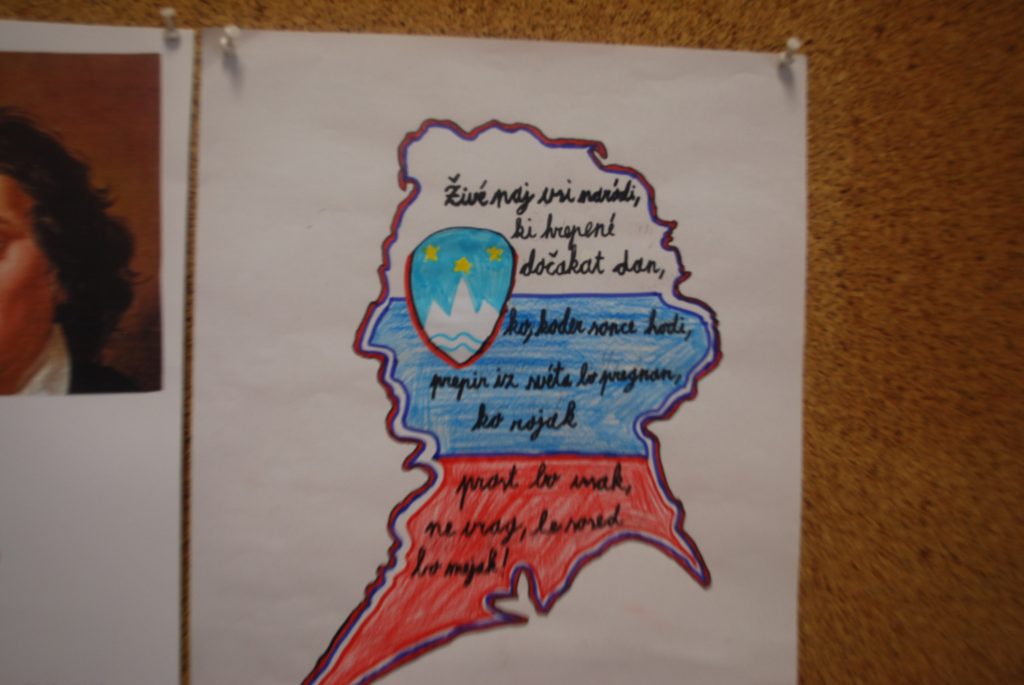 Živé naj vsi naródi,
ki hrepené
dočakat dan,
ko, koder sonce hodi,
prepir iz svéta bo pregnan,
ko rojak
prost bo vsak,
ne vrag, le sosed
bo mejak!